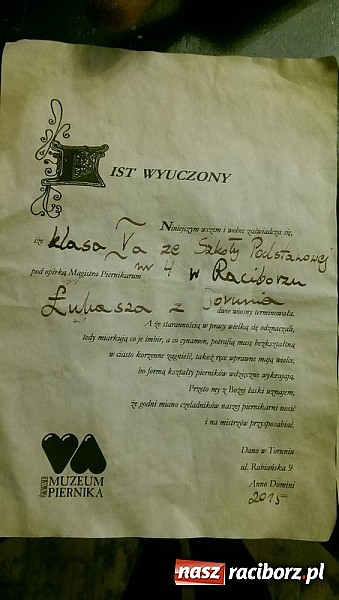 LIST WYUCZONY
Niniejszym wszem i wobec zaświadcza się,
iże klasa Va ze Szkoły Podstawowej
nr 4 w Raciborzu
pod opieką Magistra Piernikarum
Łukasza z Torunia
dwie wiosny terminowała.
A że starannością w pracy wielką się odznaczali,
tedy miarkują co je imbir, a co cynamon, potrafią masę bezkształtną
w ciasto korzenne zagnieść, takoż ręce wprawne mają wielce,
bo formą kształty pierników wdzięczne wykrajają.
Przeto my z Bożej łaski uznajem,
że godni miano czeladników naszej piernikarni nosić
i na mistrzów przysposabiać.
Dano w Toruniu
ul. Rabiańska 9
Anno Domini
2015
MUZEUM
PIERNIKA
nasz raciborz.pl